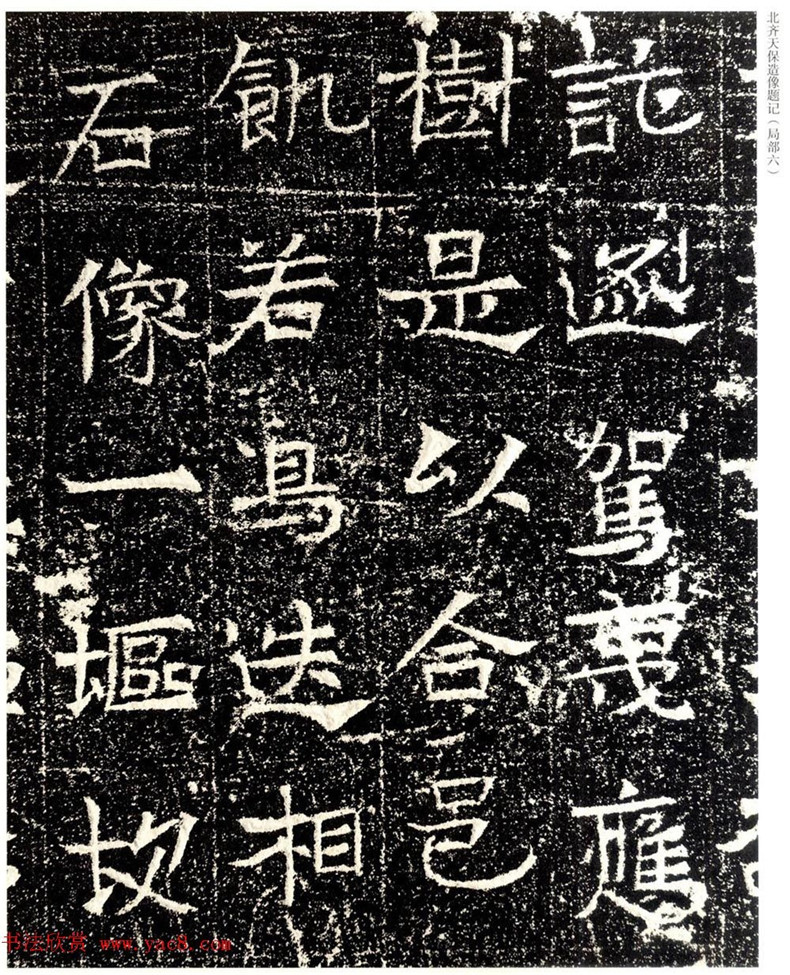 北齐天保造像题记（局部六）
託駕應
樹是以合邑
飢若迭相
石像一塸
书法欣赏 www.yac8.com